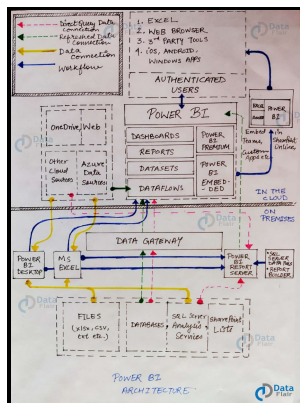 DirectQuery Data
Connection
Refreshed Data
Connection
Data
Connection
Workflow
1. EXCEL
2. WEB BROWSER
3. 3rd PARTY TOOLS
4. iOS, ANDROID,
WINDOWS APPS
AUTHENTICATED
USERS
POWER BI
DASHBOARDS
REPORTS
DATASETS
DATAFLOWS
POWER
BI
PREMIUM
POWER
BI
EMBED-
DED
OneDrive
Web
Other
Cloud
Sources
Azure
Data
Sources
POWER
BI
Embed in
Teams, SharePoint
Custom Online
apps etc.
IN THE
CLOUD
ON
PREMISES
DATA GATEWAY
POWER
BI
DESKTOP
MS
EXCEL
POWER
BI
REPORT
SERVER
SQL
SERVER
DATA TOOLS
REPORT
BUILDER
FILES
(xlsx, csv,
txt etc.)
DATABASES
SQL Server
Analysis
Services
SharePoint
Lists
POWER BI
ARCHITECTURE
Data
Flair
Data
Flair
Data
Flair